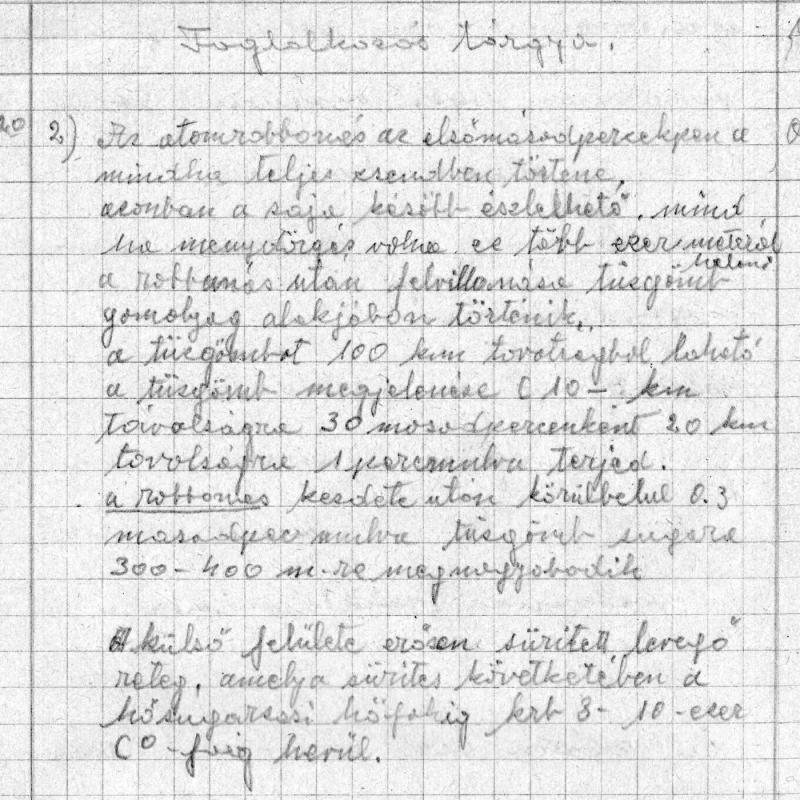 Foglalkozás tárgya.
20 2) Az atomrobbonás az elsőmásodperckpen a
mindha teljes csendben történe,
azonban a zaja később észlelhető, mind
ha menydörgés volna ez több ezer méteról
a robbanás után felvillanása tüzgömb
gomolyag alakjában történik,
a tüzgömbot 100 km tovolságból láható
a tüzgömb megjelenése 10 - km
távolságra 30 mosodpercenként 20 km
tovolságra 1 percmulva terjed.
a robbonás kezdete után körülbelul 0.3
masodperc mulva tüzgömb sugara
300-400 m-re megnagyobodik
A külső felülete erősen süritett levegő
réteg, amelya sürítés következtében a
hősugarzási hőfokig krb 8- 10-ezer
C° -foig herül.